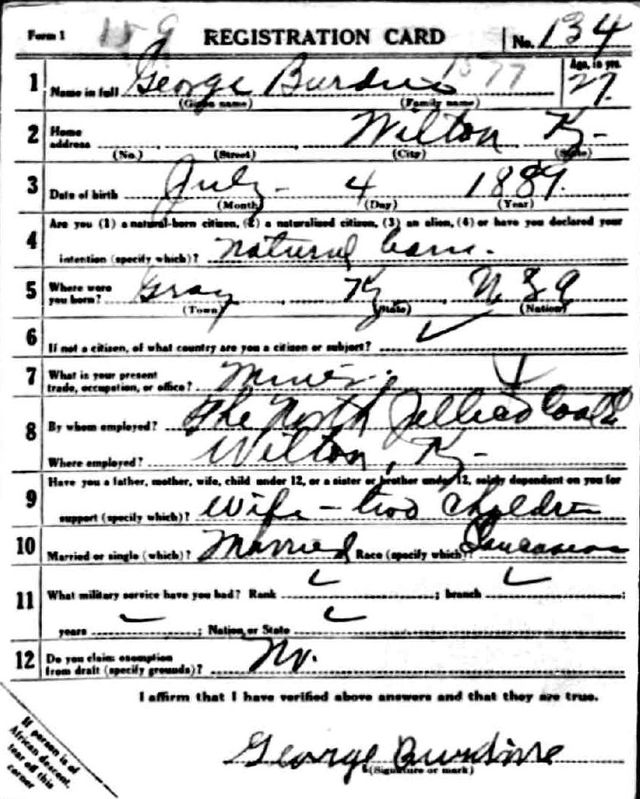 Form 1 159 REGISTRATION CARD No. 134
1 Name in full George Burdine 1577 Age, in yrs. 27
(Given name) (Family name)
2 Home address Wilton Ky-
(No.) (Street) (City) (State)
3 Date of birth July- 4 1889
(Month) (Day) (Year)
4 Are you (1) a natural-born citizen, (2) a naturalized citizen, (3) an alien, (4) or have you declared your
intention (specify which)? natural born.
5 Where were you born? Gray, Ky, U S A
(Town) (State) (Nation)
6 If not a citizen, of what country are you a citizen or subject? ✓
7 What is your present trade, occupation, or office? Miner
8 By whom employed? The North Jellico Coal
Where employed? Wilton, Ky-
9 Have you a father, mother, wife, child under 12, or a sister or brother under 12, solely dependent on you for
support (specify which)? Wife - two Children
10 Married or single (which)? Married Race (specify which)? Caucasian
11 What military service have you had? Rank ✓ ; branch ✓ ;
years ✓ ; Nation or State ✓
12 Do you claim exemption from draft (specify grounds)? No.
I affirm that I have verified above answers and that they are true.
George Burdine
(Signature or mark)
If person is of
African descent,
tear off this
corner